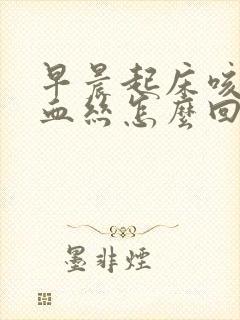 早晨起床咳
血絲怎麼回
墨非煙